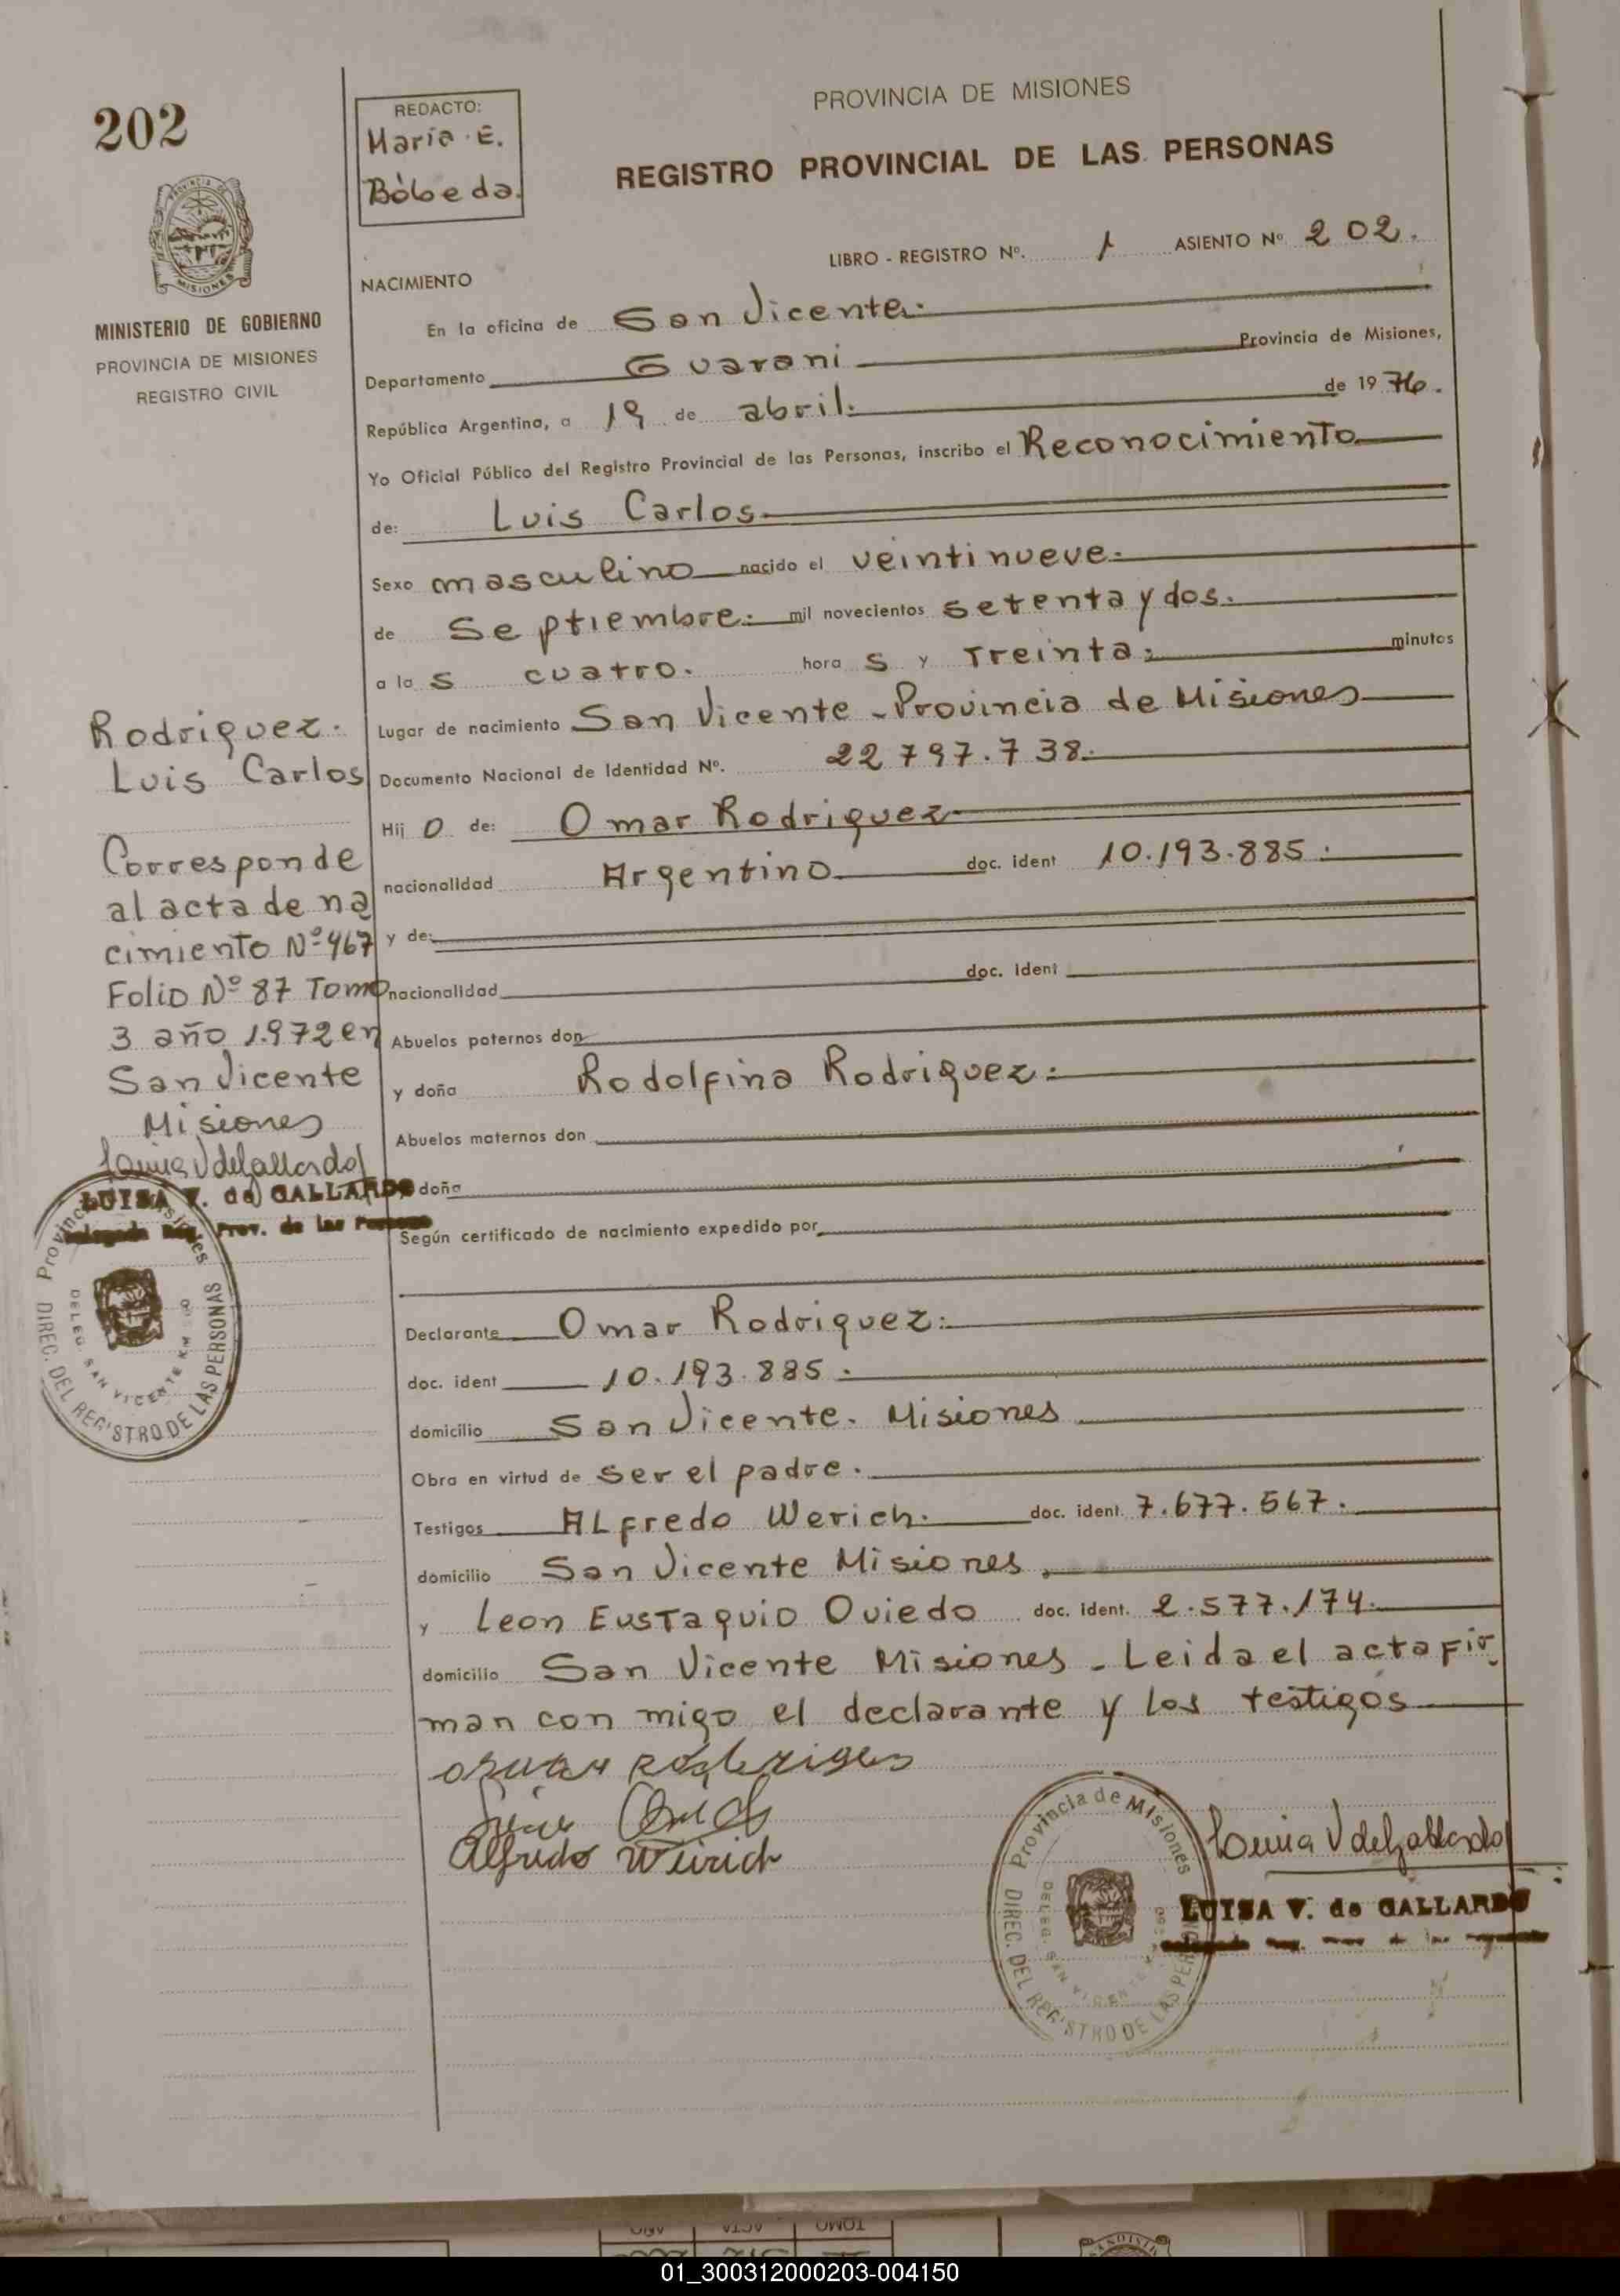 202
REDACTO:
María E.
Bóbeda.
PROVINCIA DE MISIONES
REGISTRO PROVINCIAL DE LAS PERSONAS
LIBRO - REGISTRO Nº. 1 ASIENTO Nº 202.
MISIONES
MINISTERIO DE GOBIERNO
PROVINCIA DE MISIONES
REGISTRO CIVIL
NACIMIENTO
En la oficina de San Vicente.
Departamento Guarani Provincia de Misiones,
República Argentina, a 19 de abril. de 1976.
Yo Oficial Público del Registro Provincial de las Personas, inscribo el Reconocimiento
de: Luis Carlos
Sexo masculino nacido el veintinueve.
de Septiembre. mil novecientos setenta y dos.
a la s cuatro. hora s y Treinta. minutos
Lugar de nacimiento San Vicente - Provincia de Misiones
Documento Nacional de Identidad Nº. 22 797.738.
Hij o de: Omar Rodriguez
nacionalidad Argentino doc. ident 10.193.885.
y de:
nacionalidad doc. ident
Abuelos paternos don
y doña Rodolfina Rodriguez.
Abuelos maternos don
doña
Según certificado de nacimiento expedido por
Declarante Omar Rodriguez.
doc. ident 10.193.885.
domicilio San Vicente. Misiones
Obra en virtud de ser el padre.
Testigos Alfredo Werich. doc. ident. 7.677.567.
domicilio San Vicente Misiones.
y Leon Eustaquio Oviedo doc. ident. 2.577.174.
domicilio San Vicente Misiones - Leida el acta fir
man con migo el declarante y los testigos
Rodriguez.
Luis Carlos
Corresponde
al acta de na
cimiento Nº 467
Folio Nº 87 Tomo
3 año 1.972 en
San Vicente
Misiones
Luisa V de Gallardo
LUISA V. de GALLARDO
Prov. de las
Provincia de Misiones
DIREC. DEL REGISTRO DE LAS PERSONAS
DELEG. SAN VICENTE KM
Alfredo Weirich
Luisa V de Gallardo
LUISA V. de GALLARDO
Provincia de Misiones
DIREC. DEL REGISTRO DE LAS PER
DELEG. SAN VICEN
AÑO ACTA TOMO
01_300312000203-004150